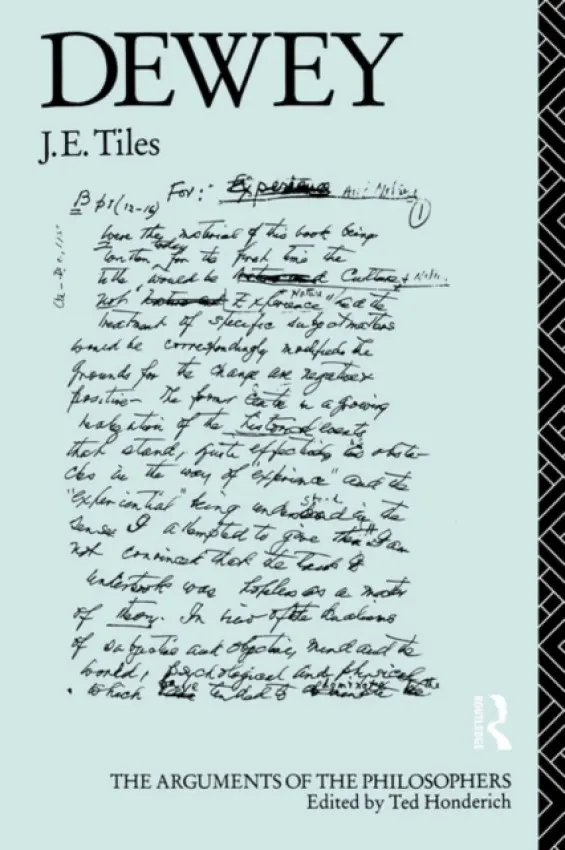 DEWEY
J.E. Tiles
For: Experience And Nature
1
Were the material of this book being
written today for the first time the
title would be Culture & Nature
not Experience had the
treatment of specific subject matters
would be correspondingly modified the
grounds for the change are negative
positive The former in a growing
realization of the historical
that stand, quite effectively as obsta-
cles in the way of "experience" and the
"experiential" being understood in the
sense I attempted to give them I am
not convinced that the task I
undertook was hopeless as a matter
of theory. In view of the dualisms
of subjective and objective, mind and the
world, psychological and physical
which have tended to dominate the
ROUTLEDGE
THE ARGUMENTS OF THE PHILOSOPHERS
Edited by Ted Honderich